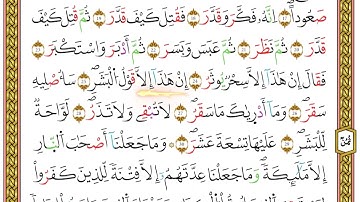 صَعُودًا ۝١٧ إِنَّهُۥ فَكَّرَ وَقَدَّرَ ۝١٨ فَقُتِلَ كَيْفَ قَدَّرَ ۝١٩ ثُمَّ قُتِلَ كَيْفَ
قَدَّرَ ۝٢٠ ثُمَّ نَظَرَ ۝٢١ ثُمَّ عَبَسَ وَبَسَرَ ۝٢٢ ثُمَّ أَدْبَرَ وَاسْتَكْبَرَ ۝٢٣
فَقَالَ إِنْ هَٰذَا إِلَّا سِحْرٌ يُؤْثَرُ ۝٢٤ إِنْ هَٰذَا إِلَّا قَوْلُ الْبَشَرِ ۝٢٥ سَأُصْلِيهِ
سَقَرَ ۝٢٦ وَمَا أَدْرَىٰكَ مَا سَقَرُ ۝٢٧ لَا تُبْقِي وَلَا تَذَرُ ۝٢٨ لَوَّاحَةٌ
لِّلْبَشَرِ ۝٢٩ عَلَيْهَا تِسْعَةَ عَشَرَ ۝٣٠ وَمَا جَعَلْنَا أَصْحَٰبَ النَّارِ
إِلَّا مَلَٰئِكَةً وَمَا جَعَلْنَا عِدَّتَهُمْ إِلَّا فِتْنَةً لِّلَّذِينَ كَفَرُوا